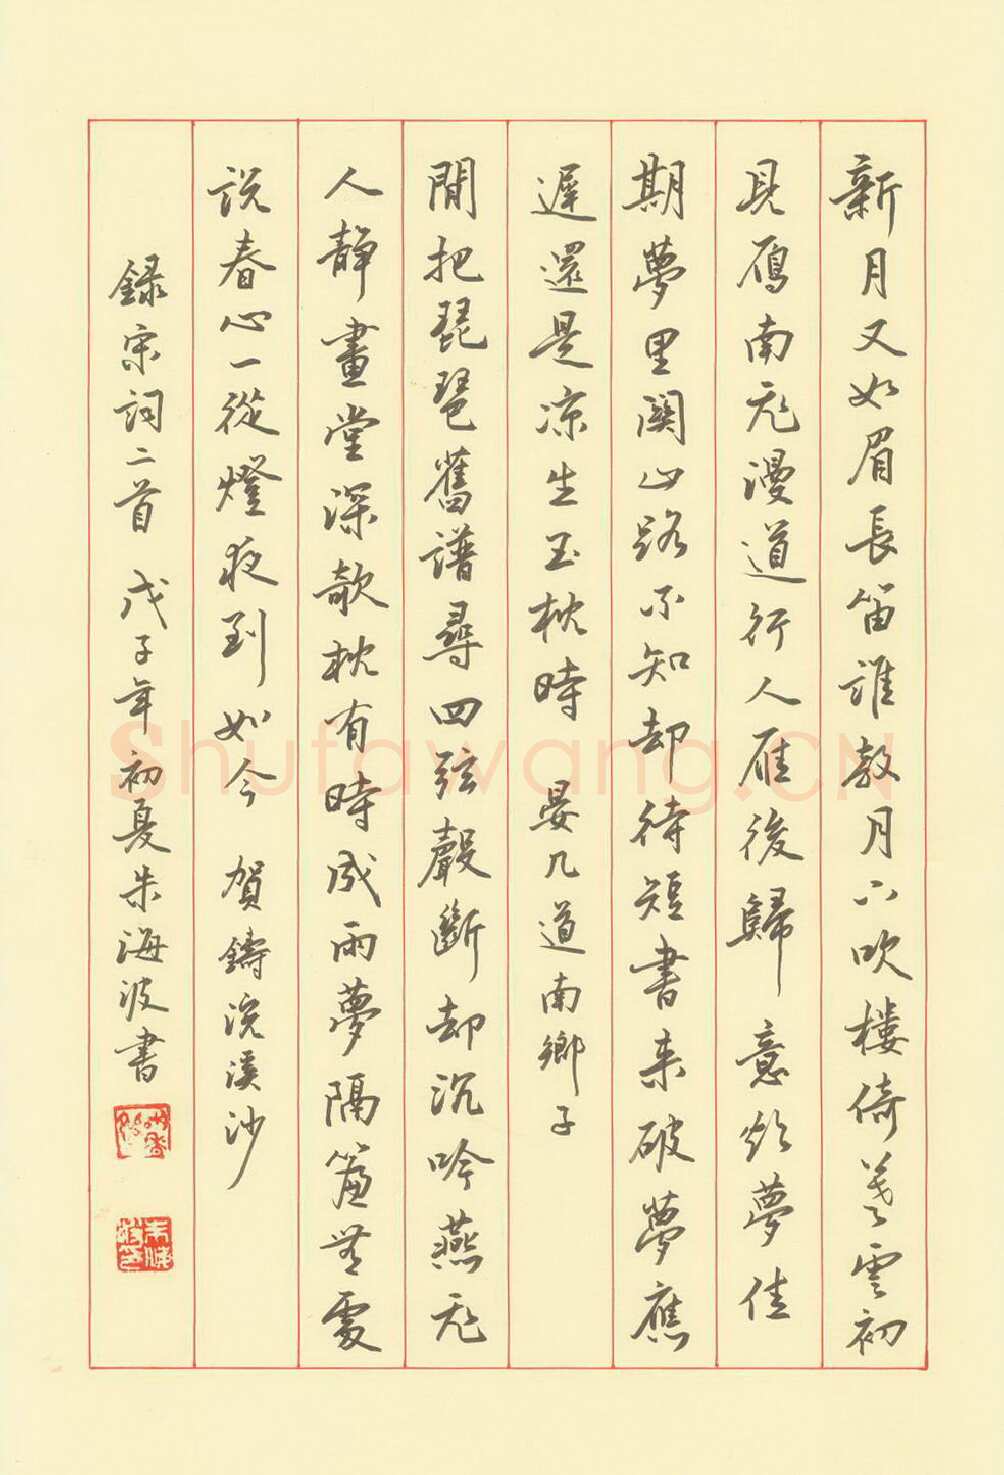 新月又如眉長笛誰教月下吹樓倚暮雲初
見鴈南飛漫道行人雁後歸 意欲夢佳
期夢里關山路不知却待短書来破夢應
遲還是凉生玉枕時 晏几道南鄉子
閒把琵琶舊譜尋四弦聲斷却沉吟燕飛
人靜畫堂深欹枕有時成雨夢隔簾無處
説春心一從燈夜到如今 賀鑄浣溪沙
録宋詞二首 戊子年初夏朱海波書
Shufawang.CN